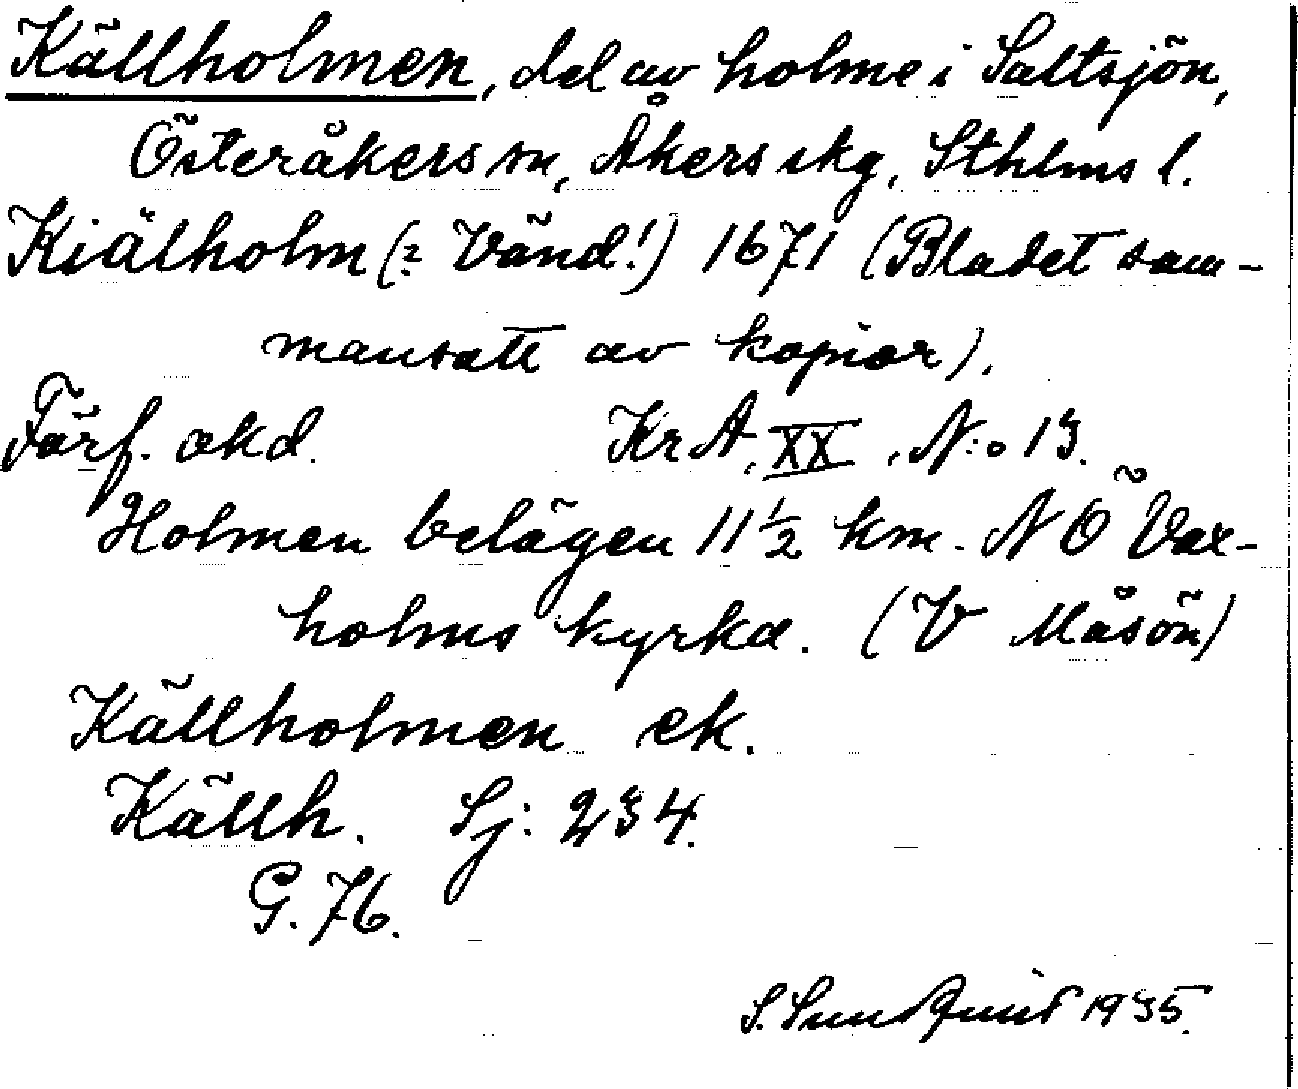 Källholmen, del av holme i Saltsjön,
Österåkers sn, Åkers skg, Sthlms l.
Kiälholm (? Vänd!) 1671 (Bladet sam-
mansatt av kopior).
Förf. okd. KrA, XX, N:o 13.
Holmen belägen 11½ km. NÖ Vax-
holms kyrka. (V Måsön)
Källholmen ek.
Källh. Sj: 234.
G. 76.
S. Sundquist 1935.